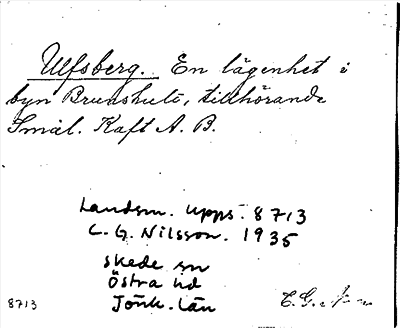 Ulfsberg. En lägenhet i
byn Brunshult, tillhörande
Smål. Kaft A. B.
Landsm. Upps. 8713
C. G. Nilsson. 1935
Skede sn
Östra hd
Jönk. län
8713
C. G.